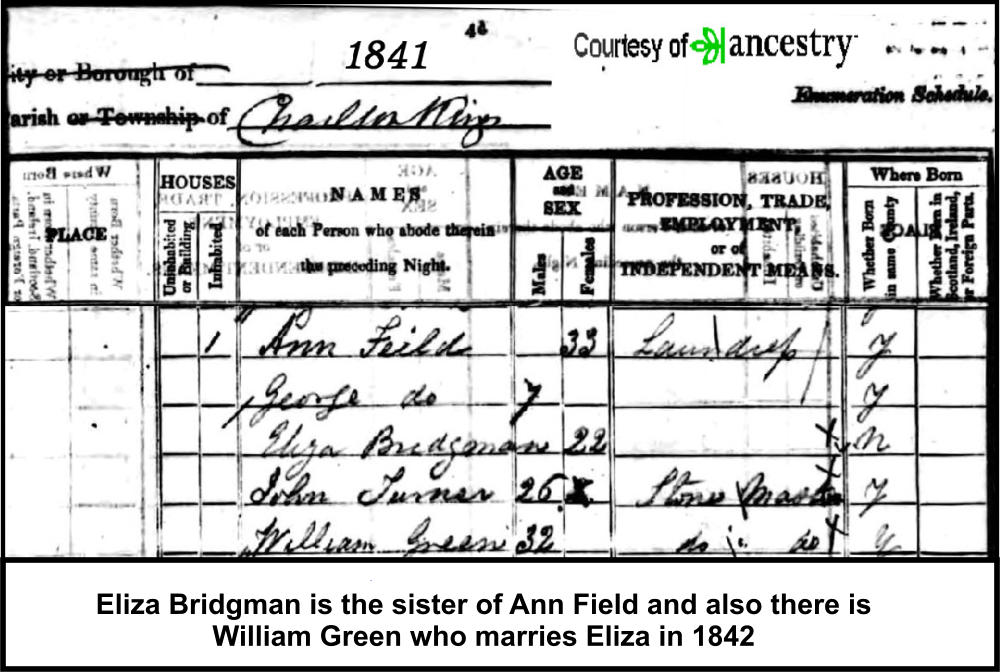 4d
1841
Courtesy of ancestry
ity or Borough of
Enumeration Schedule.
arish or Township of Charlton Kings
PLACE
HOUSES
Uninhabited or Building
Inhabited
NAMES
of each Person who abode therein
the preceding Night.
AGE
and
SEX
Males
Females
PROFESSION, TRADE,
EMPLOYMENT,
or of
INDEPENDENT MEANS.
Where Born
Whether Born in same County
Whether Born in Scotland, Ireland, or Foreign Parts.
1 Ann Feild 33 Laundress Y
George do 7 Y
Eliza Bridgman 22 N
John Turner 26 Stone Mason Y
William Green 32 do do Y
Eliza Bridgman is the sister of Ann Field and also there is
William Green who marries Eliza in 1842